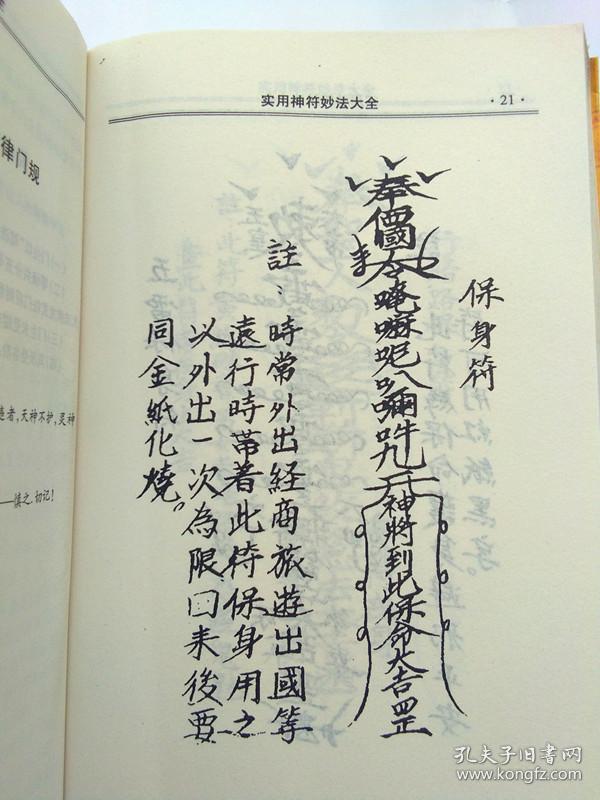 律门规
违者,天神不护,灵神
——慎之,切记!
实用神符妙法大全
·21·
保身符
奉
令唵嘛呢叭嚩吽
神將到此保命大吉罡
註:時常外出经商旅遊出國等
遠行時帶着此符保身用之
以外出一次為限回来後要
同金紙化燒。
孔夫子旧书网
www.kongfz.com